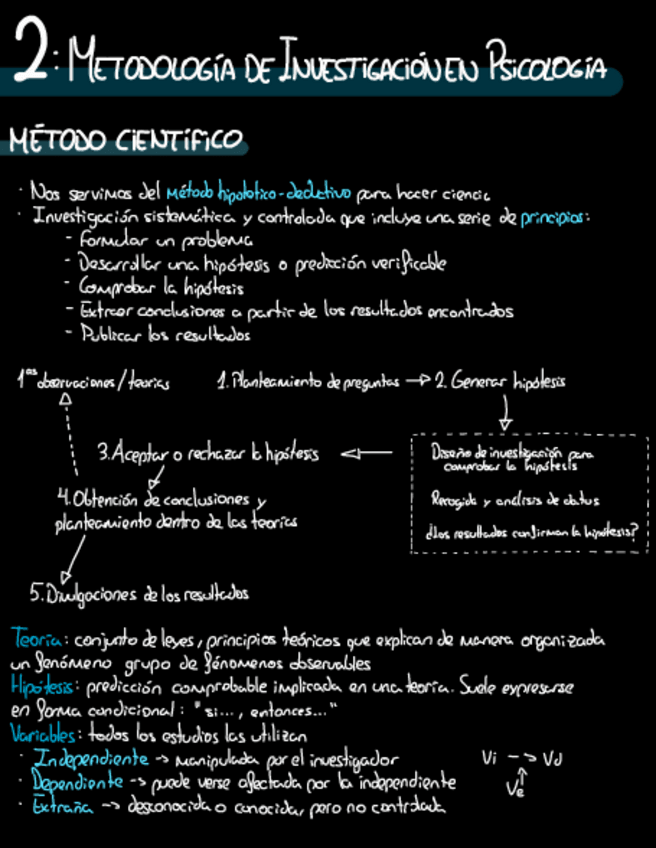 2: METODOLOGÍA DE INVESTIGACIÓN EN PSICOLOGÍA
MÉTODO CIENTÍFICO
· Nos servimos del método hipotético-deductivo para hacer ciencia
· Investigación sistemática y controlada que incluye una serie de principios:
- Formular un problema
- Desarrollar una hipótesis o predicción verificable
- Comprobar la hipótesis
- Extraer conclusiones a partir de los resultados encontrados
- Publicar los resultados
1as observaciones/teorías 1. Planteamiento de preguntas → 2. Generar hipótesis
3. Aceptar o rechazar la hipótesis ←
Diseño de investigación para
comprobar la hipótesis
Recogida y análisis de datos
¿Los resultados confirman la hipótesis?
4. Obtención de conclusiones y
planteamiento dentro de las teorías
5. Divulgaciones de los resultados
Teoría: conjunto de leyes, principios teóricos que explican de manera organizada
un fenómeno grupo de fénomenos observables
Hipótesis: predicción comprobable implicada en una teoría. Suele expresarse
en forma condicional: "si..., entonces..."
Variables: todos los estudios las utilizan
· Independiente -> manipulada por el investigador
· Dependiente -> puede verse afectada por la independiente
· Extraña -> desconocida o conocida, pero no controlada
Vi -> Vd
Ve